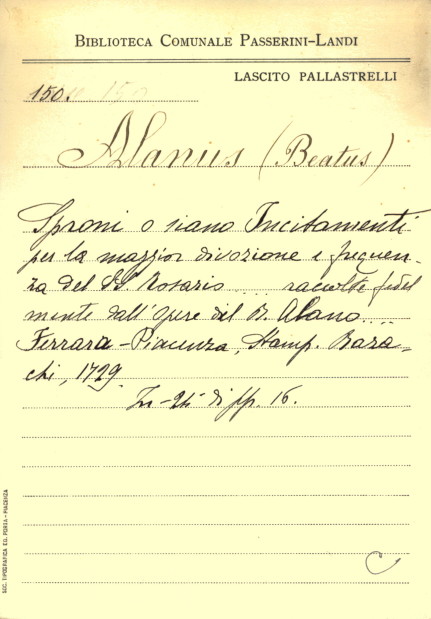 BIBLIOTECA COMUNALE PASSERINI-LANDI
LASCITO PALLASTRELLI
150.
Alanus (Beatus)
Sproni o siano Incitamenti
per la maggior divozione e frequen-
za del SS. Rosario .... raccolte fedel
mente dall'Opere del B. Alano....
Ferrara - Piacenza, Stamp. Bara-
chi, 1729.
In-24 di pp. 16.
C
SOC. TIPOGRAFICA ED. PORTA - PIACENZA